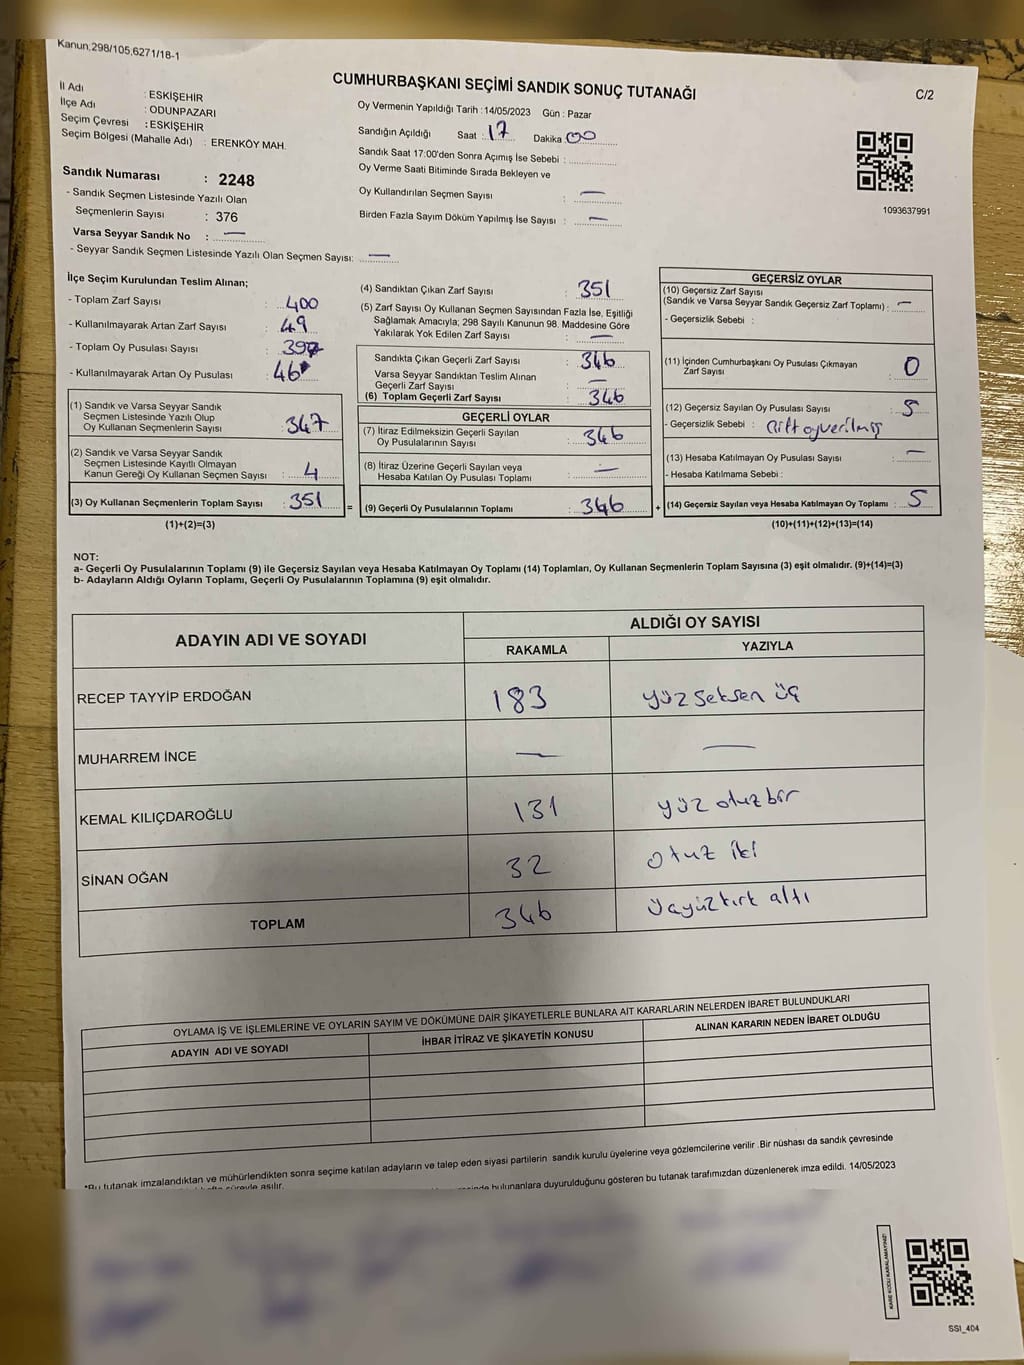 Kanun:298/105,6271/18-1
CUMHURBAŞKANI SEÇİMİ SANDIK SONUÇ TUTANAĞI
C/2
İl Adı : ESKİŞEHİR
İlçe Adı : ODUNPAZARI
Seçim Çevresi : ESKİŞEHİR
Seçim Bölgesi (Mahalle Adı) : ERENKÖY MAH.
Sandık Numarası : 2248
- Sandık Seçmen Listesinde Yazılı Olan
Seçmenlerin Sayısı : 376
Varsa Seyyar Sandık No : —
- Seyyar Sandık Seçmen Listesinde Yazılı Olan Seçmen Sayısı: —
Oy Vermenin Yapıldığı Tarih : 14/05/2023 Gün : Pazar
Sandığın Açıldığı Saat : 17 Dakika 00
Sandık Saat 17:00'den Sonra Açımış İse Sebebi :
Oy Verme Saati Bitiminde Sırada Bekleyen ve
Oy Kullandırılan Seçmen Sayısı : —
Birden Fazla Sayım Döküm Yapılmış İse Sayısı : —
1093637991
İlçe Seçim Kurulundan Teslim Alınan;
- Toplam Zarf Sayısı : 400
- Kullanılmayarak Artan Zarf Sayısı : 49
- Toplam Oy Pusulası Sayısı : 397
- Kullanılmayarak Artan Oy Pusulası : 46
(1) Sandık ve Varsa Seyyar Sandık
Seçmen Listesinde Yazılı Olup
Oy Kullanan Seçmenlerin Sayısı : 347
(2) Sandık ve Varsa Seyyar Sandık
Seçmen Listesinde Kayıtlı Olmayan
Kanun Gereği Oy Kullanan Seçmen Sayısı : 4
(3) Oy Kullanan Seçmenlerin Toplam Sayısı : 351 =
(1)+(2)=(3)
(4) Sandıktan Çıkan Zarf Sayısı : 351
(5) Zarf Sayısı Oy Kullanan Seçmen Sayısından Fazla İse, Eşitliği
Sağlamak Amacıyla; 298 Sayılı Kanunun 98. Maddesine Göre
Yakılarak Yok Edilen Zarf Sayısı : —
Sandıkta Çıkan Geçerli Zarf Sayısı : 346
Varsa Seyyar Sandıktan Teslim Alınan
Geçerli Zarf Sayısı : —
(6) Toplam Geçerli Zarf Sayısı : 346
GEÇERLİ OYLAR
(7) İtiraz Edilmeksizin Geçerli Sayılan
Oy Pusulalarının Sayısı : 346
(8) İtiraz Üzerine Geçerli Sayılan veya
Hesaba Katılan Oy Pusulası Toplamı : —
(9) Geçerli Oy Pusulalarının Toplamı : 346 +
GEÇERSİZ OYLAR
(10) Geçersiz Zarf Sayısı
(Sandık ve Varsa Seyyar Sandık Geçersiz Zarf Toplamı) : —
- Geçersizlik Sebebi :
(11) İçinden Cumhurbaşkanı Oy Pusulası Çıkmayan
Zarf Sayısı : 0
(12) Geçersiz Sayılan Oy Pusulası Sayısı : 5
- Geçersizlik Sebebi : Çift oy verilmiş
(13) Hesaba Katılmayan Oy Pusulası Sayısı : —
- Hesaba Katılmama Sebebi :
(14) Geçersiz Sayılan veya Hesaba Katılmayan Oy Toplamı : 5
(10)+(11)+(12)+(13)=(14)
NOT:
a- Geçerli Oy Pusulalarının Toplamı (9) ile Geçersiz Sayılan veya Hesaba Katılmayan Oy Toplamı (14) Toplamları, Oy Kullanan Seçmenlerin Toplam Sayısına (3) eşit olmalıdır. (9)+(14)=(3)
b- Adayların Aldığı Oyların Toplamı, Geçerli Oy Pusulalarının Toplamına (9) eşit olmalıdır.
ADAYIN ADI VE SOYADI
ALDIĞI OY SAYISI
RAKAMLA YAZIYLA
RECEP TAYYİP ERDOĞAN 183 yüz seksen üç
MUHARREM İNCE — —
KEMAL KILIÇDAROĞLU 131 yüz otuz bir
SİNAN OĞAN 32 otuz iki
TOPLAM 346 üçyüz kırk altı
OYLAMA İŞ VE İŞLEMLERİNE VE OYLARIN SAYIM VE DÖKÜMÜNE DAİR ŞİKAYETLERLE BUNLARA AİT KARARLARIN NELERDEN İBARET BULUNDUKLARI
ADAYIN ADI VE SOYADI İHBAR İTİRAZ VE ŞİKAYETİN KONUSU ALINAN KARARIN NEDEN İBARET OLDUĞU
*Bu tutanak imzalandıktan ve mühürlendikten sonra seçime katılan adayların ve talep eden siyasi partilerin sandık kurulu üyelerine veya gözlemcilerine verilir .Bir nüshası da sandık çevresinde
bulunanlara duyurulduğunu gösteren bu tutanak tarafımızdan düzenlenerek imza edildi. 14/05/2023
KARE KODU KARALAMAYINIZ!
SSI_404